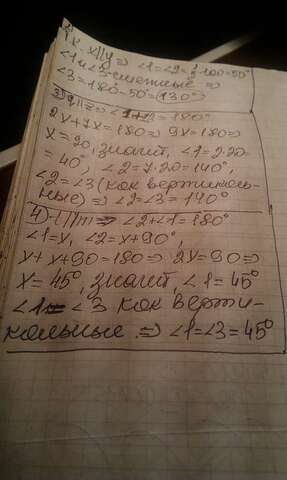 x||y ⇒ ∠1=∠2=½·100=50°
∠1 и ∠3-смежные ⇒
∠3=180-50°=130°
∠1+∠2=180°
2x+7x=180⇒9x=180⇒
x=20, значит, ∠1=2·20=
=40°, ∠2=7·20=140°,
∠2=∠3(как вертикаль-
ные)⇒∠2=∠3=140°
4) l||m⇒∠2+∠1=180°
∠1=x, ∠2=x+90°,
x+x+90=180⇒2x=90⇒
x=45°, значит, ∠1=45°
∠1=∠3 как верти-
кольные ⇒ ∠1=∠3=45°